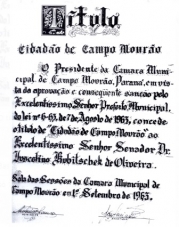 Título
Cidadão de Campo Mourão
O Presidente da Câmara Muni-
cipal de Campo Mourão, Paraná, em vis-
ta da aprovação e consequente sanção pelo
Excelentíssimo Senhor Prefeito Municipal,
da lei nº 6-63, de 7 de Agosto de 1963, concede
o título de "Cidadão de Campo Mourão" ao
Excelentíssimo Senhor Senador Dr.
Juscelino Kubitschek de Oliveira.
Sala das Sessões da Câmara Municipal de
Campo Mourão em 1º Setembro de 1963.